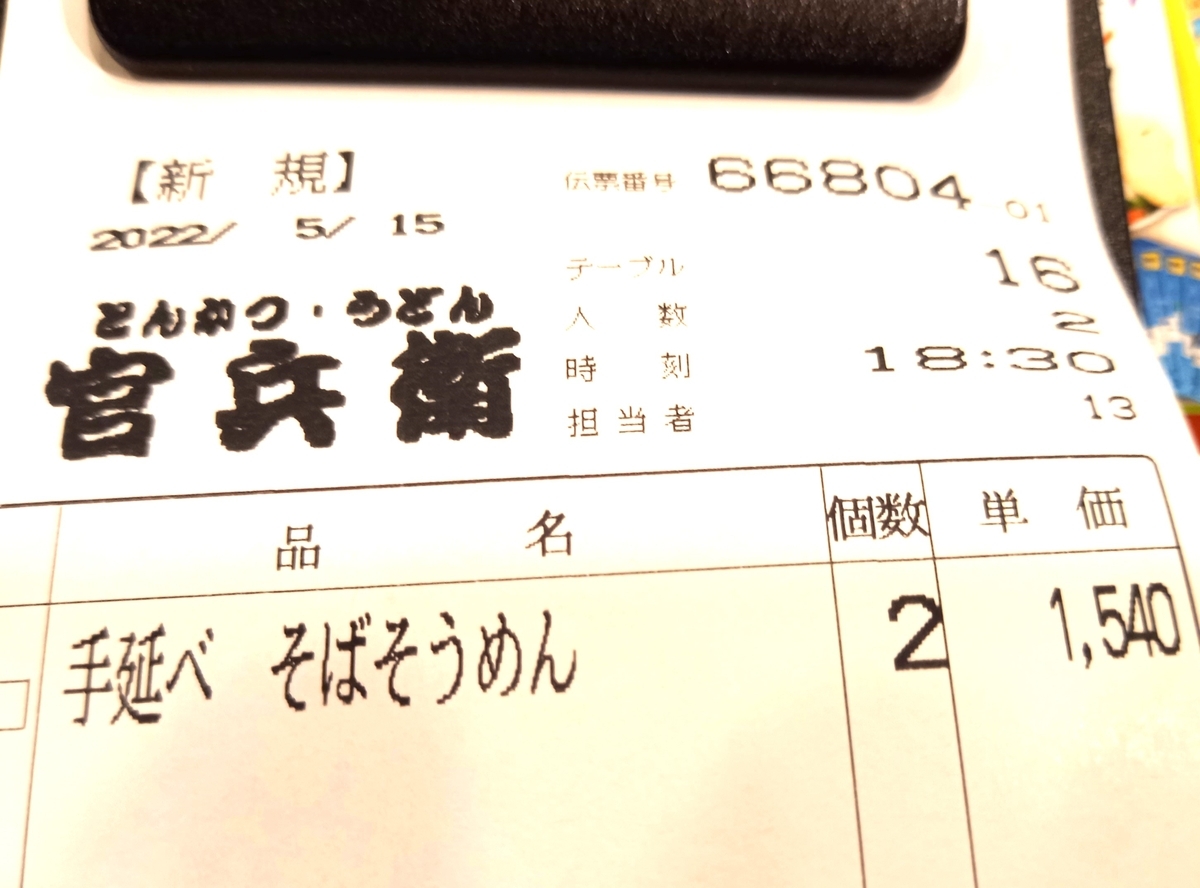 【新 規】
伝票番号 66804-01
2022/ 5/ 15
テーブル 16
人 数 2
時 刻 18:30
担当者 13
とんかつ・うどん
官兵衛
品 名 個数 単 価
手延べ そばそうめん 2 1,540